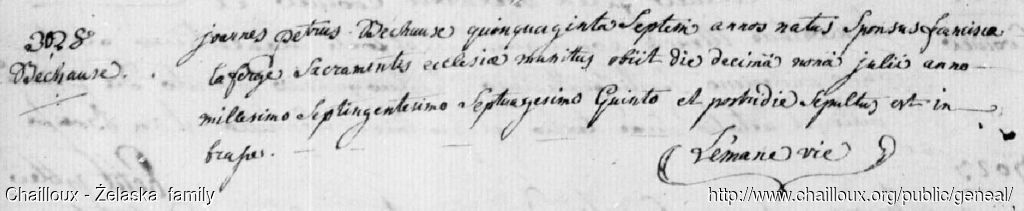 3028
Béchause.
joannes petrus Béchause quinquaginta Septem annos natus Sponsus francisca
laferge Sacramentis ecclesiæ munitus obiit die decimâ nonâ julii anno
millesimo Septingentesimo Septuagesimo Quinto et postridie Sepultus est in
Lémane vic
Chailloux - Żelaska family
http://www.chailloux.org/public/geneal/